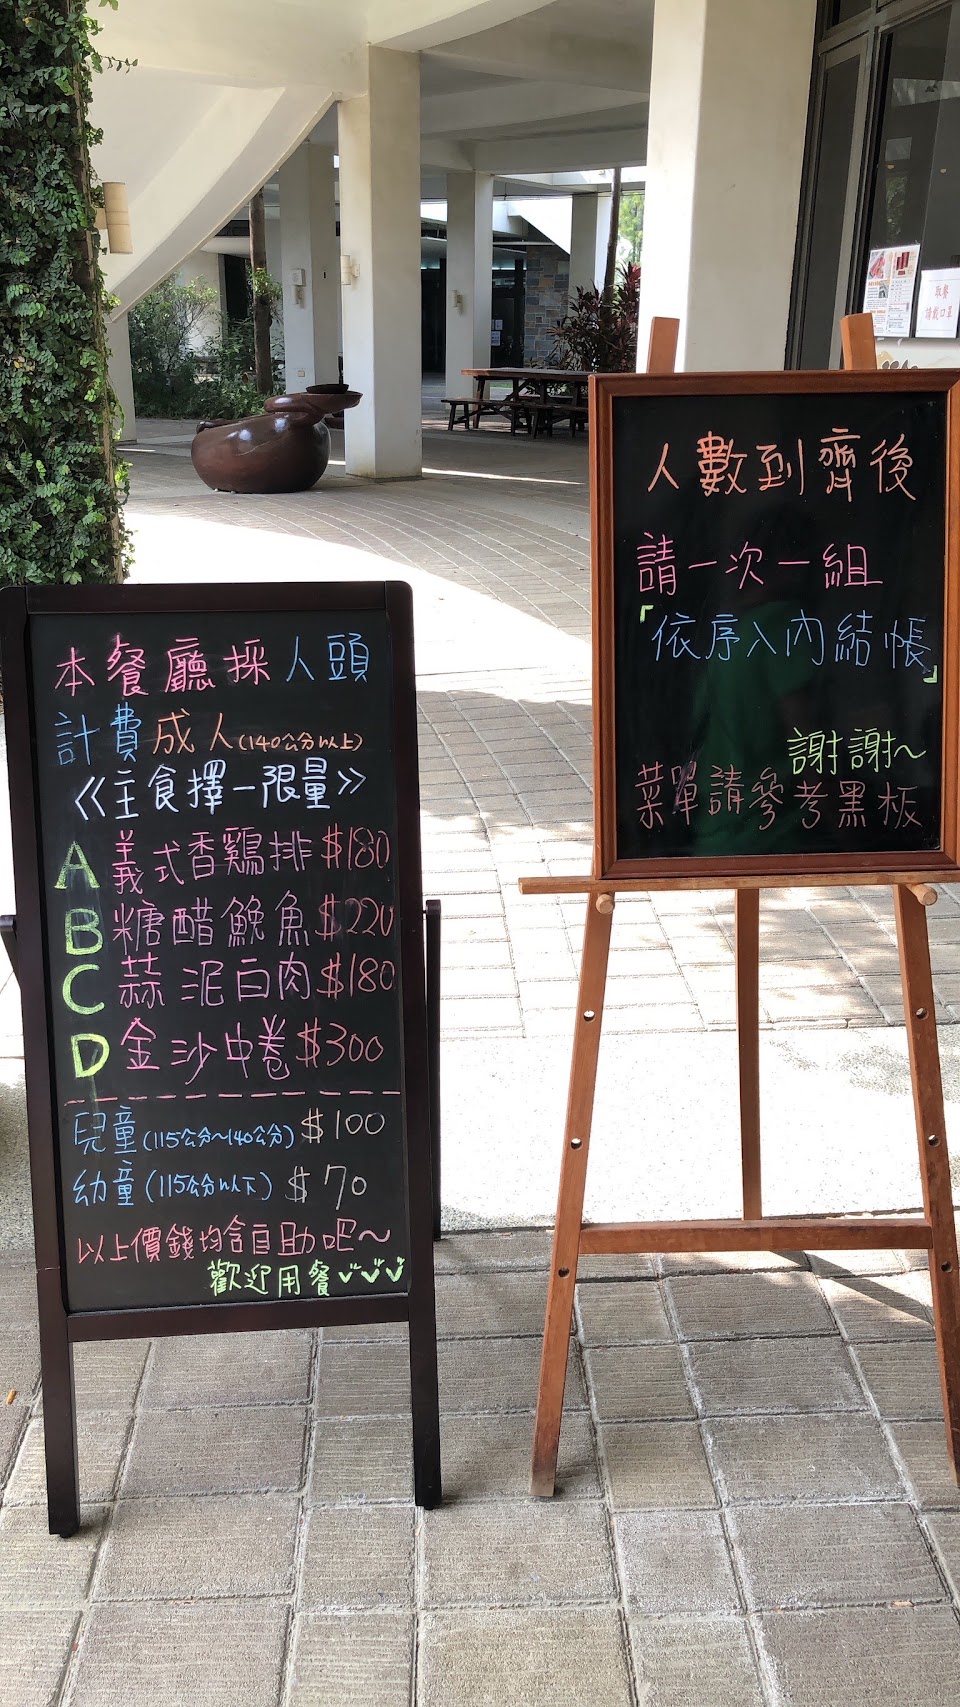 本餐廳採人頭
計費成人(140公分以上)
《主食擇一限量》
A 義式香鷄排$180
B 糖醋鮸魚$220
C 蒜泥白肉$180
D 金沙中卷$300
兒童(115公分~140公分) $100
幼童(115公分以下) $70
以上價錢均含自助吧~
歡迎用餐
人數到齊後
請一次一組
「依序入內結帳」
謝謝~
菜單請參考黑板
取餐
請戴口罩